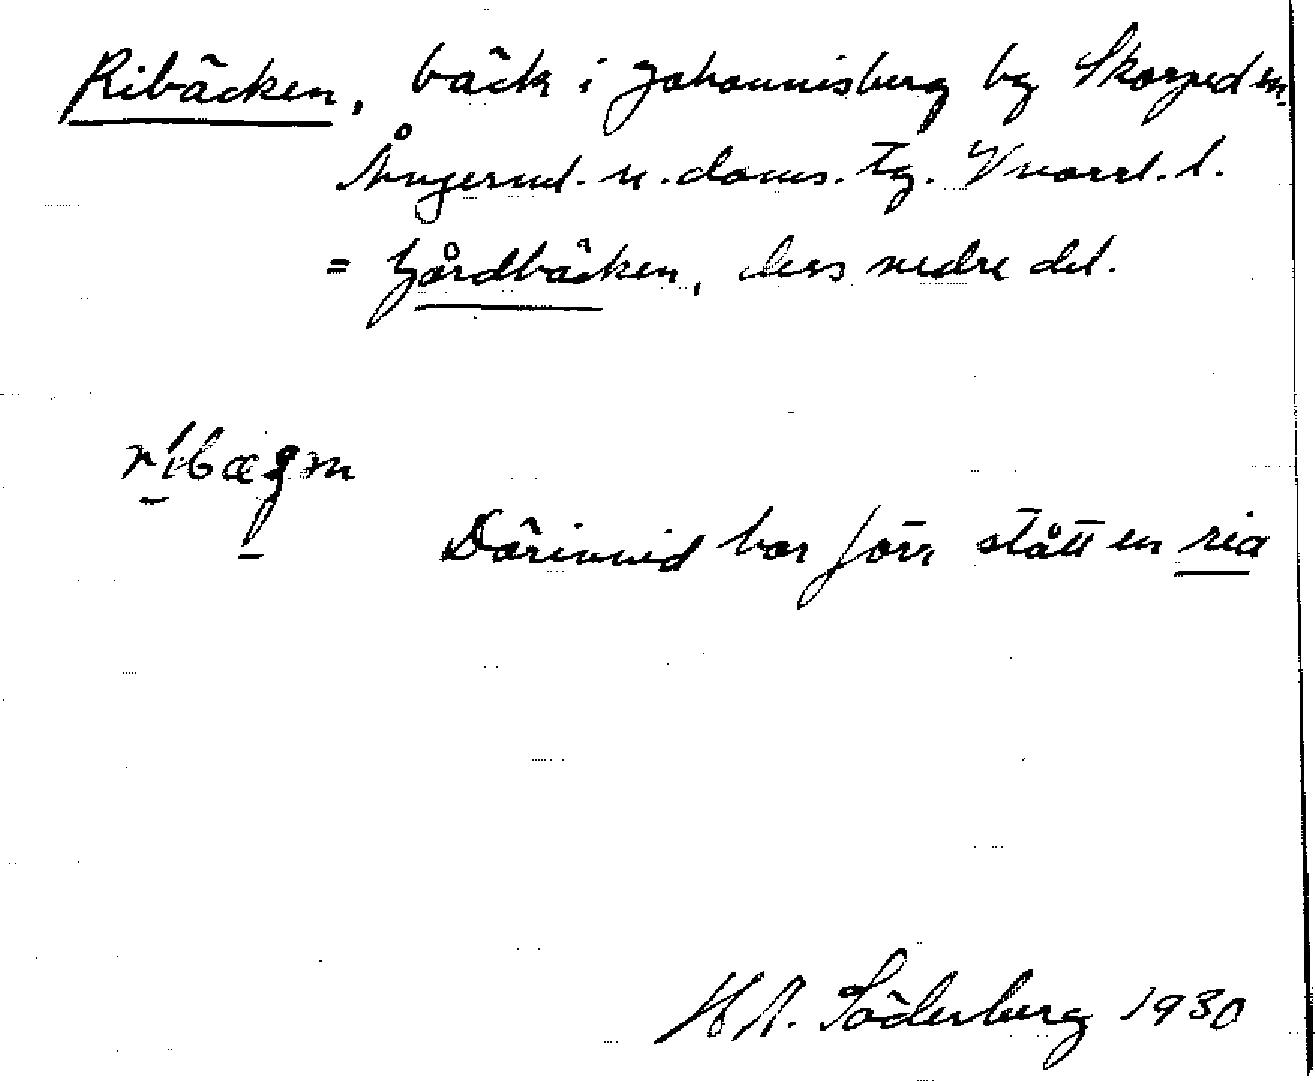 Ribäcken, bäck i Johannisberg by Skorped sn.
Ångerml. n. doms. tg. Vnorrl. l.
= Gårdbäcken, dess nedre del.
Därinvid har förr stått en ria
H A. Söderberg 1930